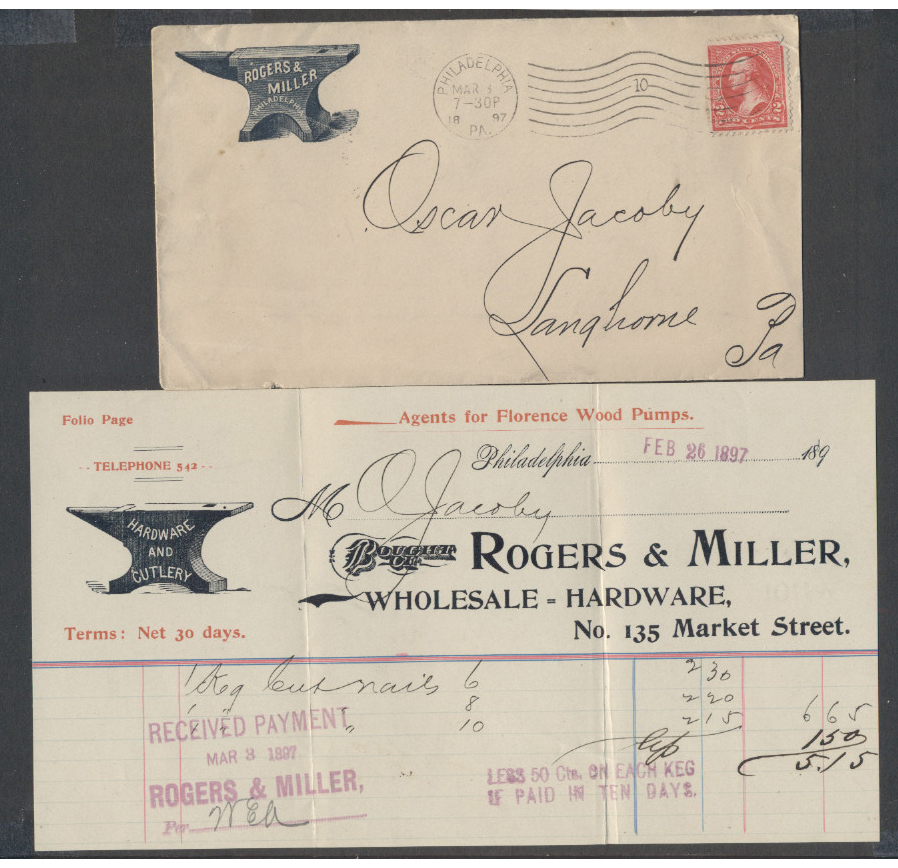 ROGERS &
MILLER
PHILADELPHIA
PHILADELPHIA
MAR 3
7-30P
18 97
PA.
10
2 2
TWO CENTS
Oscar Jacoby
Langhorne
Pa
Folio Page
Agents for Florence Wood Pumps.
TELEPHONE 542
Philadelphia FEB 26 1897 189
M O Jacoby
HARDWARE
AND
CUTLERY
BOUGHT OF ROGERS & MILLER,
WHOLESALE = HARDWARE,
Terms: Net 30 days.
No. 135 Market Street.
1 Keg Cut nails 6 2 30
1 " " 8 2 20
1 " " 10 2 15 6 65
RECEIVED PAYMENT
1 50
MAR 3 1897
5.15
LESS 50 Cts. ON EACH KEG
IF PAID IN TEN DAYS.
ROGERS & MILLER,
Per